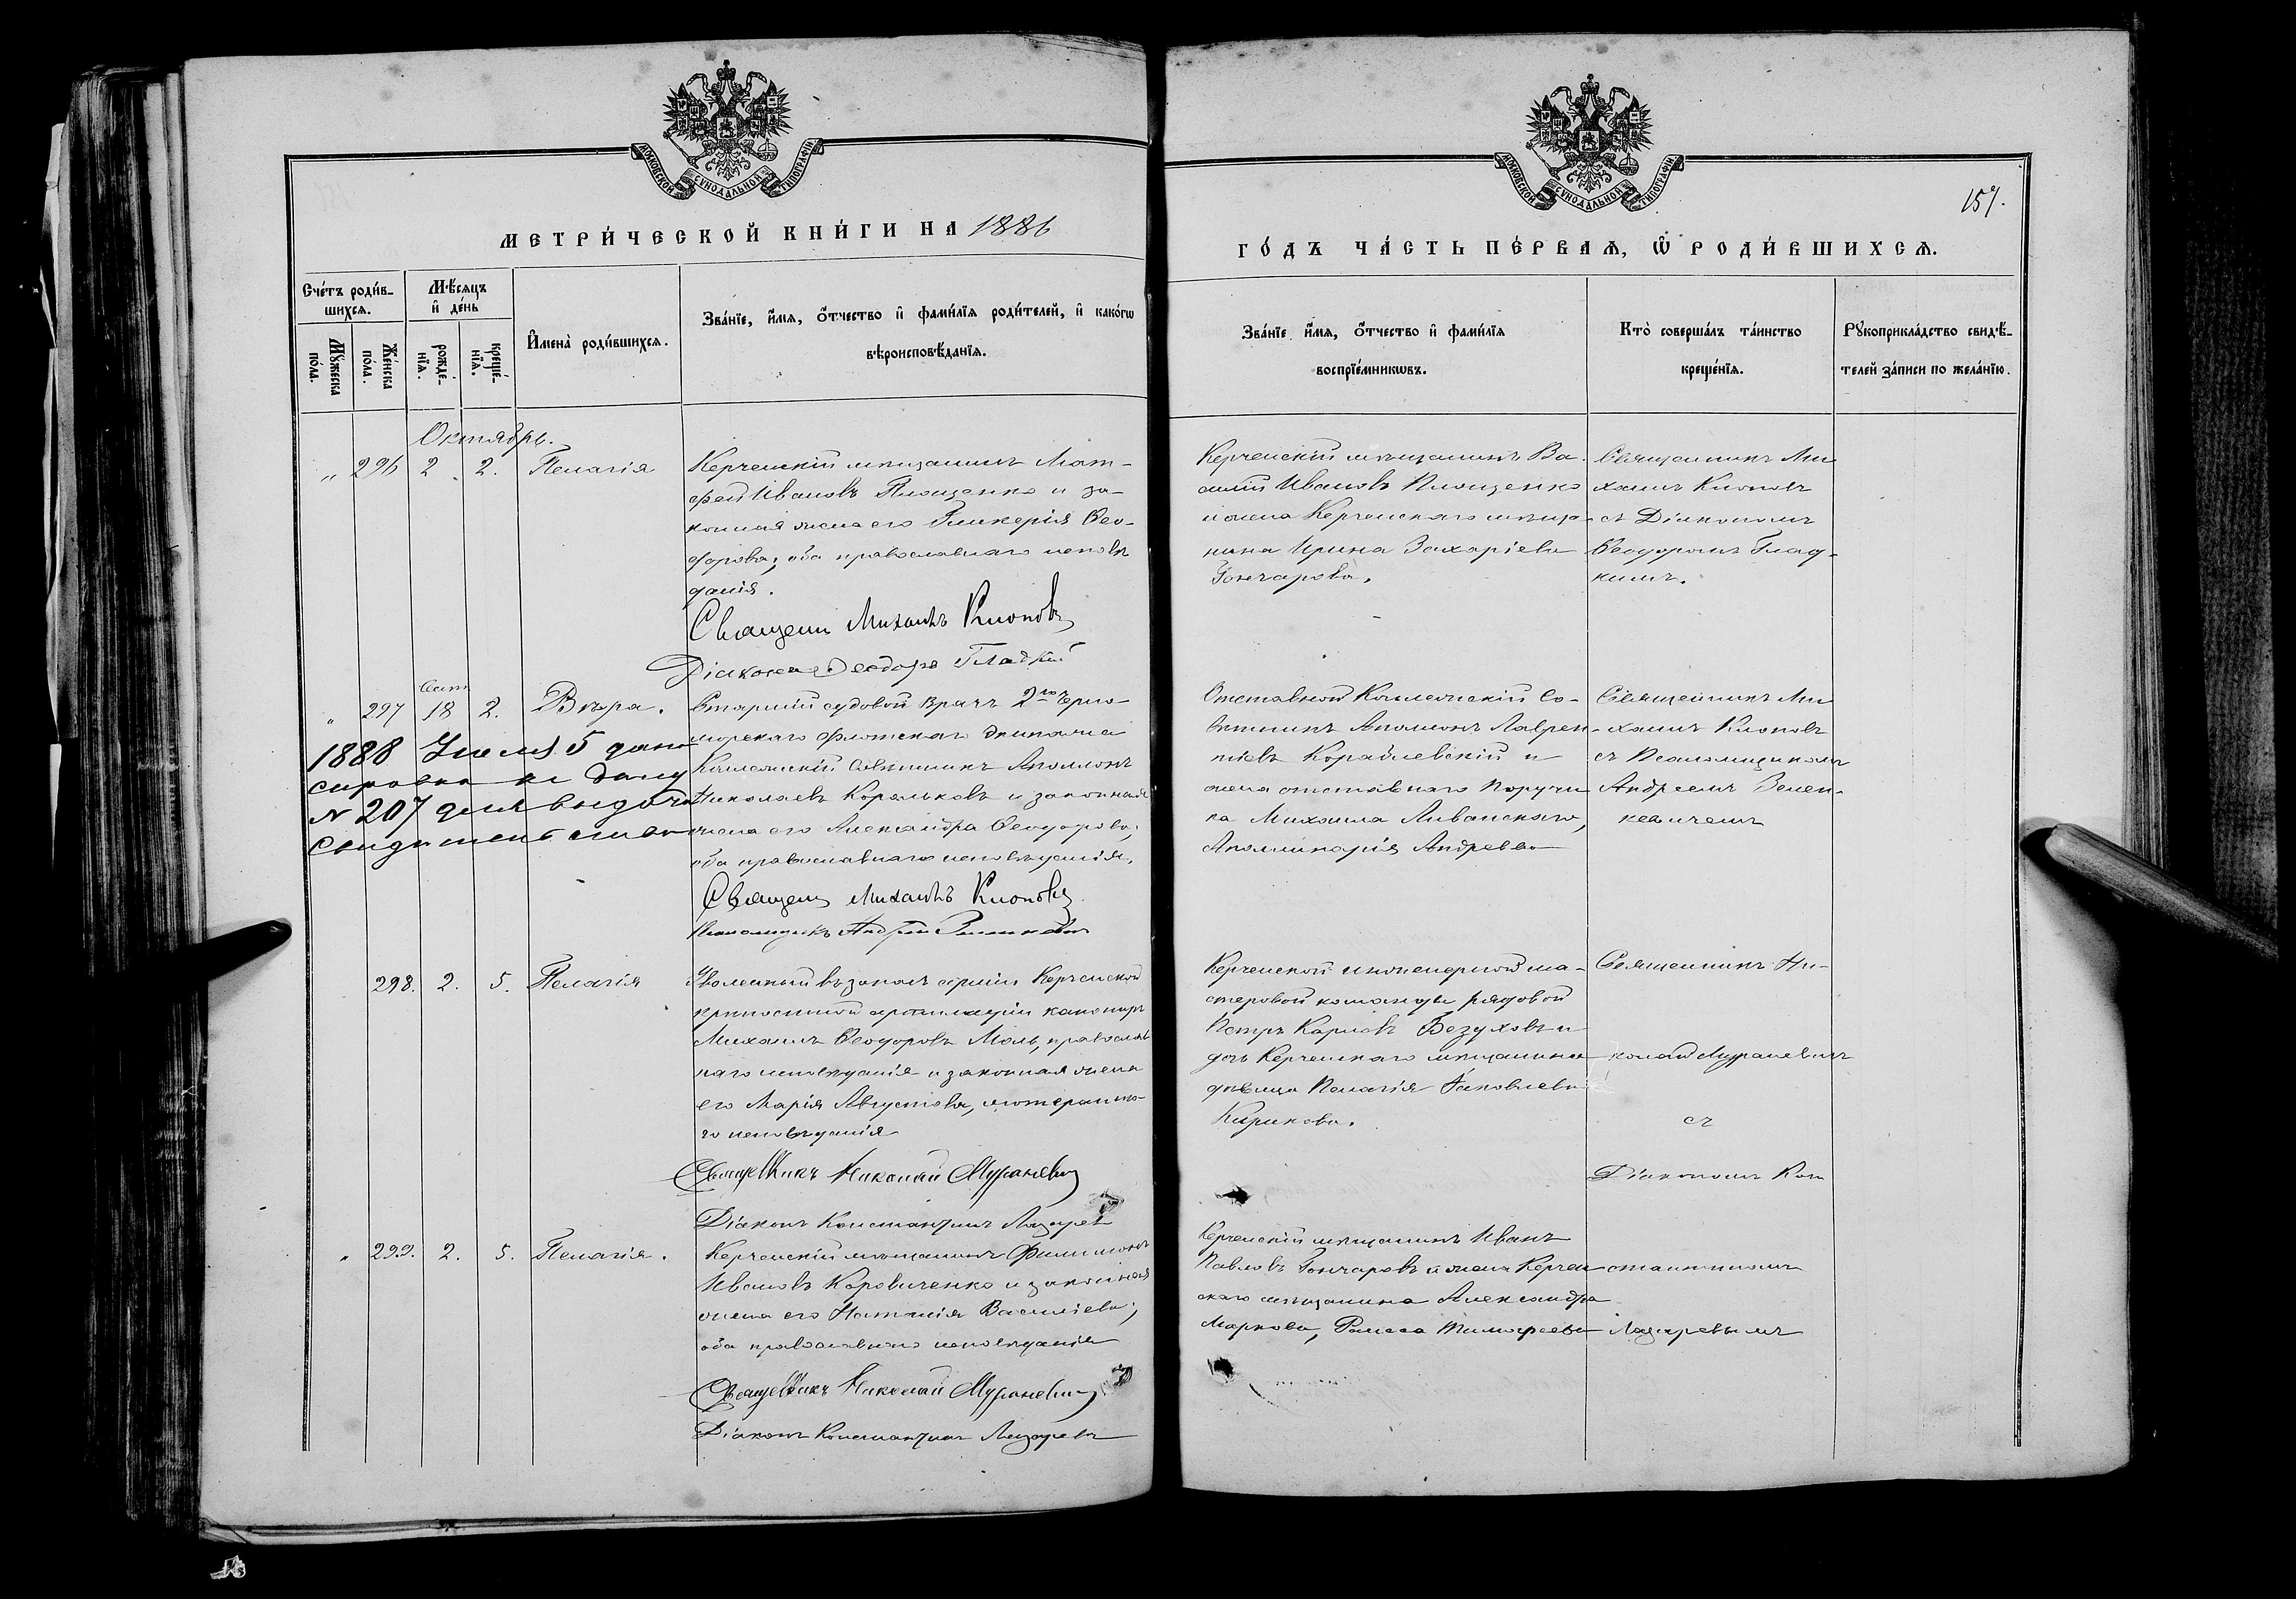 МОСКОВСКОЙ СѴНОДАЛЬНОЙ ТИПОГРАФІИ
МЕТРИ́ЧЕСКОЙ КНИ́ГИ НА 1886
Сче́тъ роди́в-
шихся.
Мѣ́сяцъ
и҆ де́нь
Мꙋ́жеска
по́ла.
Же́нска
по́ла.
рожде́-
нїѧ.
креще́-
нїѧ.
И҆мена̀ роди́вшихся.
Зва́нїе, и҆́мѧ, ѻ҆́тчество и҆ фами́лїѧ роди́телей, и҆ како́гѡ
вѣроисповѣ́данїѧ.
Октябрь.
„ 296 2 2. Пелагія
Керченскій мѣщанинъ Мат-
фей Ивановъ Площенко и за-
конная жена его Гликерія Ѳео-
дорова; оба православнаго исповѣ
данія.
Священ Михаилъ Клоповъ
Діаконъ Ѳеодоръ Гладкій
„ 297 Сент 18 2. Вѣра.
Старшій судовой врачъ 2го Черно-
морскаго флотскаго экипажа
Коллежскій Совѣтникъ Аполлонъ
Николаевъ Корольковъ и законная
жена его Александра Ѳеодорова;
оба православнаго исповѣданія.
1888 Іюля 5 дана
справка къ дѣлу
№ 207 для выдачи
свидѣтельства
Священ Михаилъ Клоповъ
Псаломщикъ Андрей Зеленкевич
298. 2. 5. Пелагія
Уволенный въ запасъ арміи Керченской
крѣпостной артиллеріи канониръ
Михаилъ Ѳеодоровъ Моль, православ
наго исповѣданія и законная жена
его Марія Августова, лютеранска-
го исповѣданія
Священникъ Николай Мураневич
Діаконъ Константинъ Лазаревъ
„ 299. 2. 5. Пелагія.
Керченскій мѣщанинъ Филимонъ
Ивановъ Коровиченко и законная
жена его Наталія Василіева;
оба православнаго исповѣданія
Священникъ Николай Мураневич
Діаконъ Константинъ Лазаревъ
МОСКОВСКОЙ СѴНОДАЛЬНОЙ ТИПОГРАФІИ
157.
ГО́ДЪ ЧА́СТЬ ПЕ́РВАЯ, Ѽ РОДИ́ВШИХСЯ.
Зва́нїе и҆́мѧ, ѻ҆́тчество и҆ фами́лїѧ
воспрїе́мникѡвъ.
Кто̀ соверша́лъ та́инство
креще́нїѧ.
Рꙋкоприкла́дство свидѣ́-
телей за́писи по жела́нїю.
Керченскій мѣщанинъ Ва-
силій Ивановъ Площенко
и жена Керченскаго мѣща-
нина Ирина Захаріева
Гончарова.
Священникъ Ми
хаилъ Клоповъ
съ Діакономъ
Ѳеодоромъ Глад-
кимъ.
Отставной Коллежскій Со-
вѣтникъ Аполлонъ Лаврен-
тіевъ Кораблевскій и
жена отставнаго Поручи
ка Михаила Ливанскаго,
Аполлинарія Андреева
Священникъ Ми
хаилъ Клоповъ
съ Псаломщикомъ
Андреемъ Зелен-
кевичемъ
Керченской инженерной ма-
стеровой команды рядовой
Петръ Карповъ Безуховъ и
дочь Керченскаго мѣщанина
дѣвица Пелагія Іаковлева
Кирикова.
Священникъ Ни-
колай Мураневичъ
съ
Діакономъ Кон
Керченскій мѣщанинъ Иванъ
Павловъ Гончаровъ и жена Керчен
скаго мѣщанина Александра
Маркова, Раиса Тимофеева
стантиномъ
Лазаревымъ